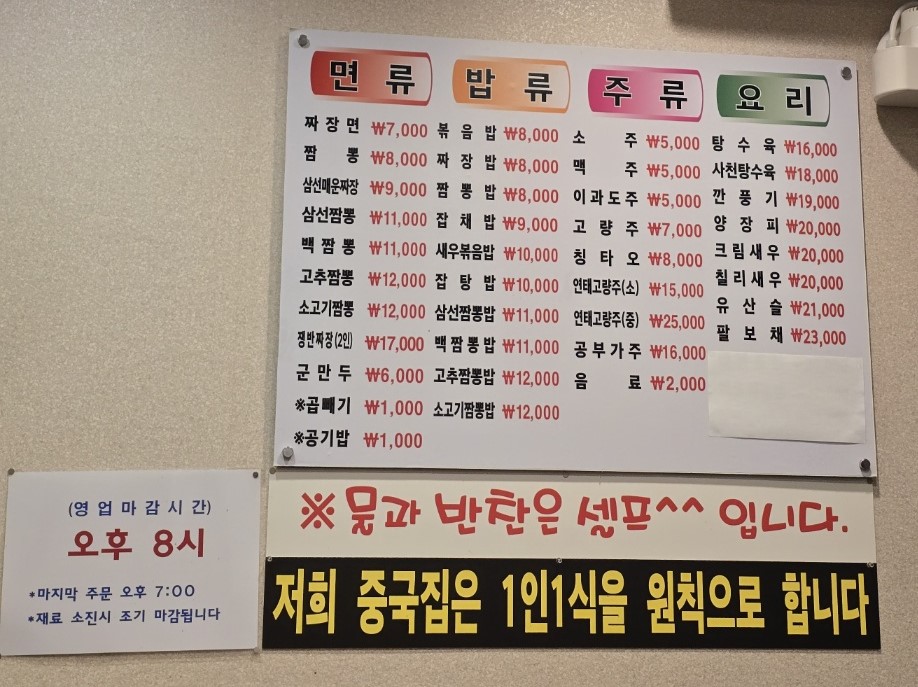 면류
짜장면 ₩7,000
짬뽕 ₩8,000
삼선매운짜장 ₩9,000
삼선짬뽕 ₩11,000
백짬뽕 ₩11,000
고추짬뽕 ₩12,000
소고기짬뽕 ₩12,000
쟁반짜장(2인) ₩17,000
군만두 ₩6,000
※곱빼기 ₩1,000
※공기밥 ₩1,000
밥류
볶음밥 ₩8,000
짜장밥 ₩8,000
짬뽕밥 ₩8,000
잡채밥 ₩9,000
새우볶음밥 ₩10,000
잡탕밥 ₩10,000
삼선짬뽕밥 ₩11,000
백짬뽕밥 ₩11,000
고추짬뽕밥 ₩12,000
소고기짬뽕밥 ₩12,000
주류
소주 ₩5,000
맥주 ₩5,000
이과도주 ₩5,000
고량주 ₩7,000
칭타오 ₩8,000
연태고량주(소) ₩15,000
연태고량주(중) ₩25,000
공부가주 ₩16,000
음료 ₩2,000
요리
탕수육 ₩16,000
사천탕수육 ₩18,000
깐풍기 ₩19,000
양장피 ₩20,000
크림새우 ₩20,000
칠리새우 ₩20,000
유산슬 ₩21,000
팔보채 ₩23,000
(영업마감시간)
오후 8시
*마지막 주문 오후 7:00
*재료 소진시 조기 마감됩니다
※물과 반찬은 셀프^^ 입니다.
저희 중국집은 1인1식을 원칙으로 합니다